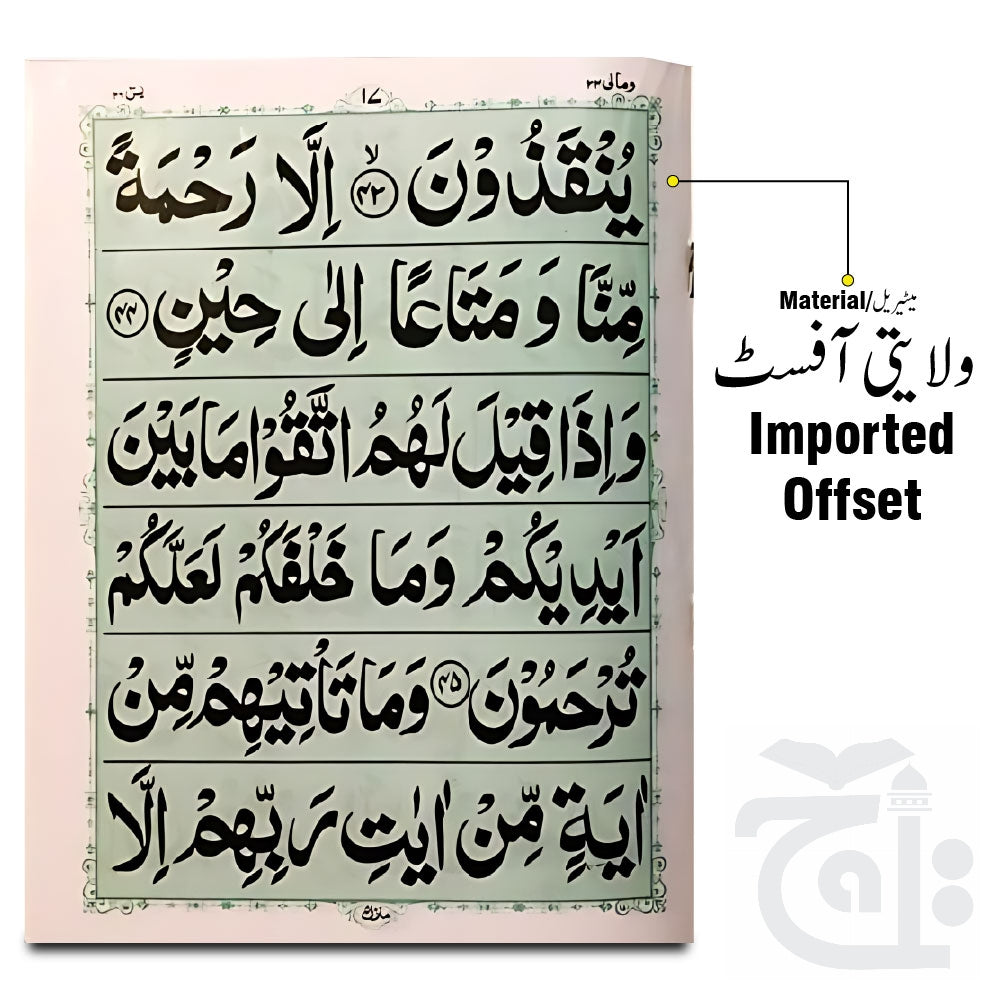 ومالی ۲۳
۱۷
یٰسٓ ۳۶
یُنْقَذُوْنَ ۙ ﴿۴۳﴾ اِلَّا رَحْمَةً
مِّنَّا وَ مَتَاعًا اِلٰی حِیْنٍ ﴿۴۴﴾
وَ اِذَا قِیْلَ لَهُمُ اتَّقُوْا مَا بَیْنَ
اَیْدِیْكُمْ وَ مَا خَلْفَكُمْ لَعَلَّكُمْ
تُرْحَمُوْنَ ﴿۴۵﴾ وَ مَا تَاْتِیْهِمْ مِّنْ
اٰیَةٍ مِّنْ اٰیٰتِ رَبِّهِمْ اِلَّا
Material/میٹیریل
ولایتی آفسٹ
Imported
Offset
تاج